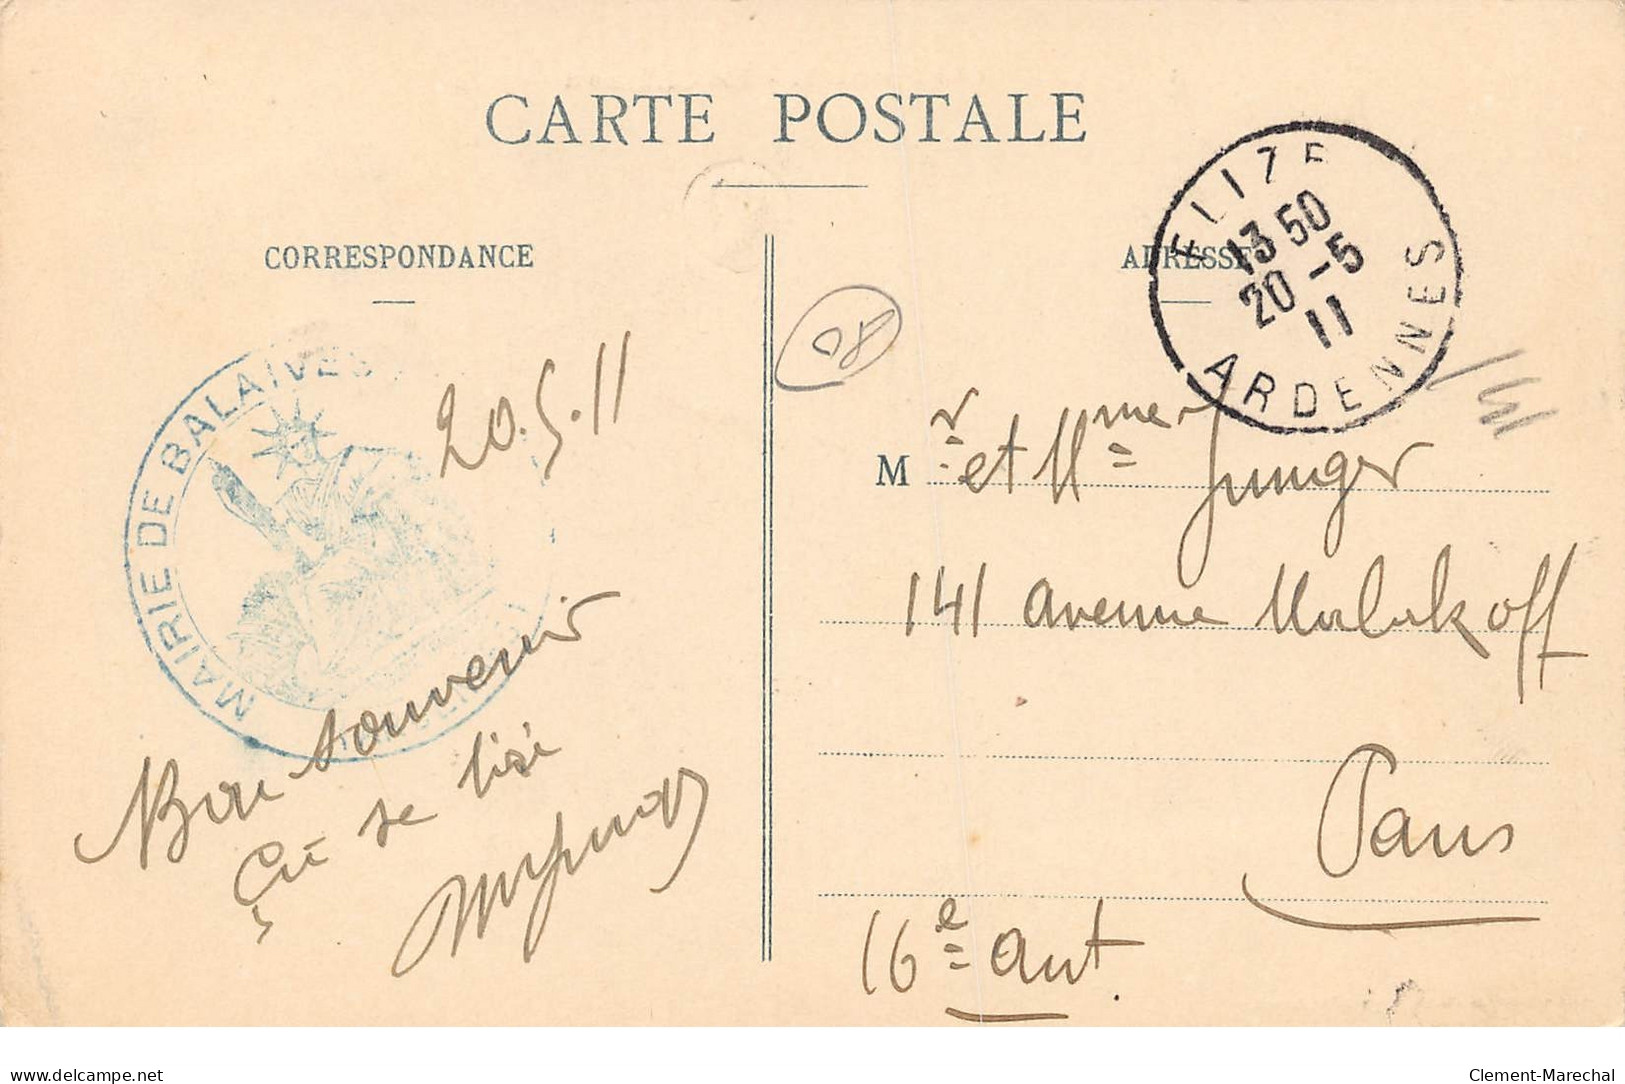 CARTE POSTALE
CORRESPONDANCE
ADRESSE
FLIZE
13 50
20 -5
11
ARDENNES
MAIRIE DE BALAIVES
20.5.11
08
141
Mr et Mme Junger
141 avenue Malakoff
Paris
16e arrt.
Bon souvenir
se
www.delcampe.net
Clement-Marechal